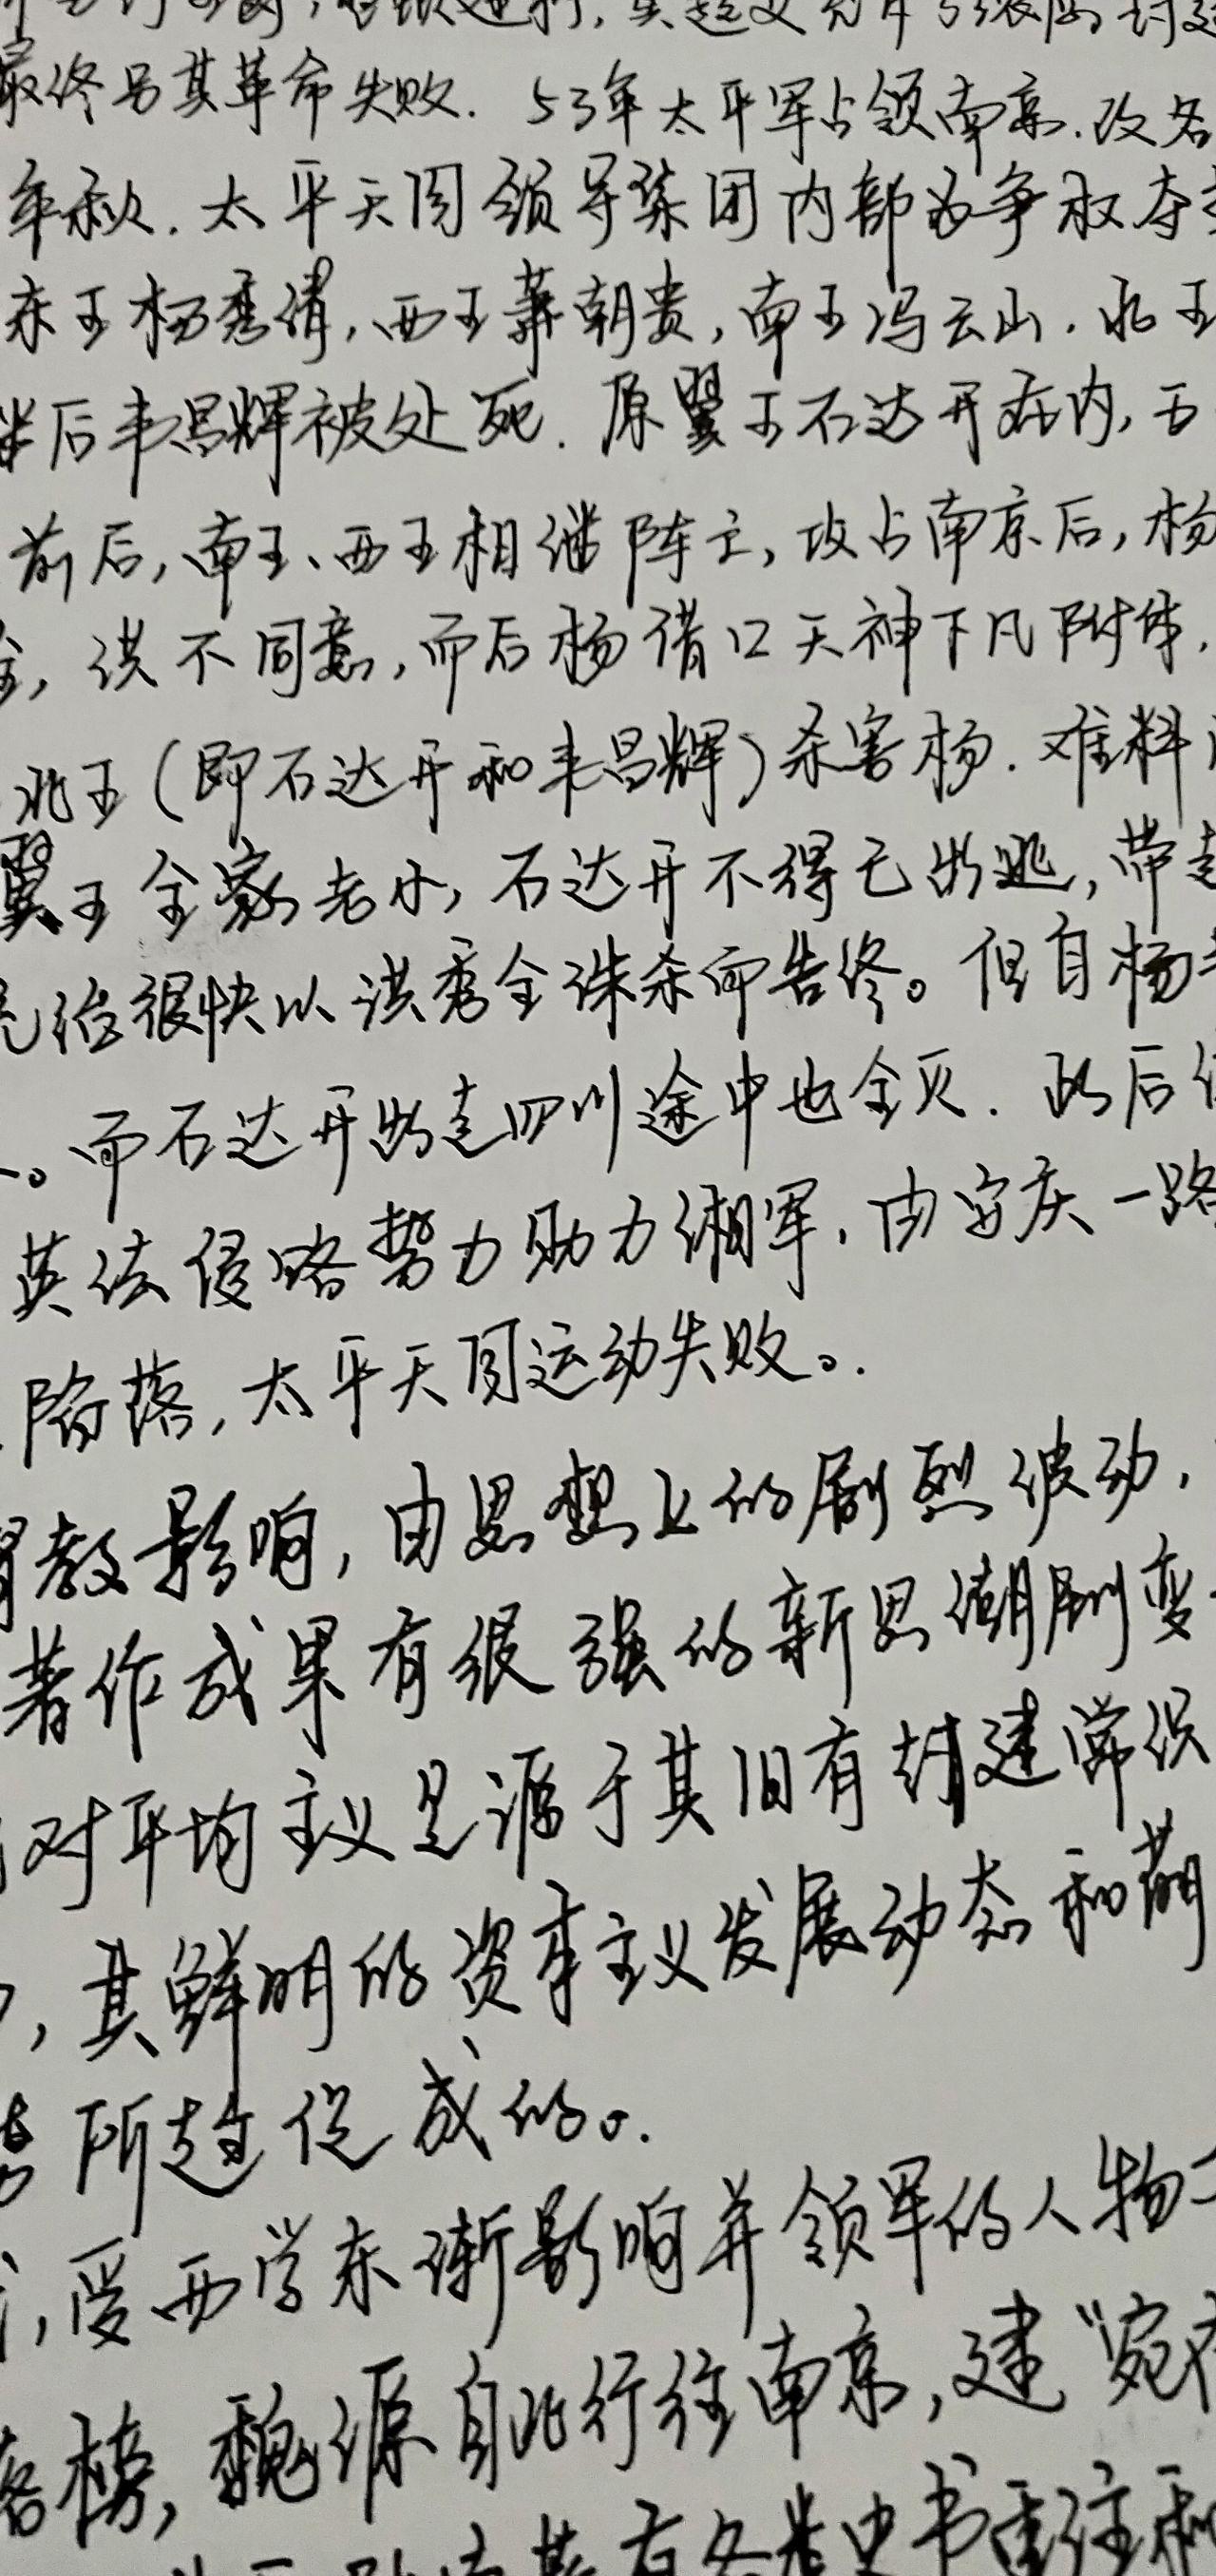 最终另其革命失败. 53年太平军占领南京.改名
年秋.太平天国领导集团内部为争权夺
东王杨秀清,西王萧朝贵,南王冯云山.北王
后韦昌辉被处死.原翼王石达开在内,五
前后,南王、西王相继阵亡,攻占南京后,杨
,洪不同意,而后杨借口天神下凡附体.
北王(即石达开和韦昌辉)杀害杨.难料
翼王全家老小,石达开不得已出逃,带
统治很快以洪秀全诛杀而告终。但自杨
。而石达开出走四川途中也全灭.此后
英法侵略势力助力湘军.由安庆一路
陷落,太平天国运动失败。.
教影响,由思想上的剧烈波动.
著作成果有很强的新思潮剧变
对平均主义是源于其旧有封建常识
,其鲜明的资本主义发展动态和萌
所趋促成的。.
,受西学东渐影响并领军的人物
落榜,魏源自北行往南京,建“宛
其有各类史书重注和